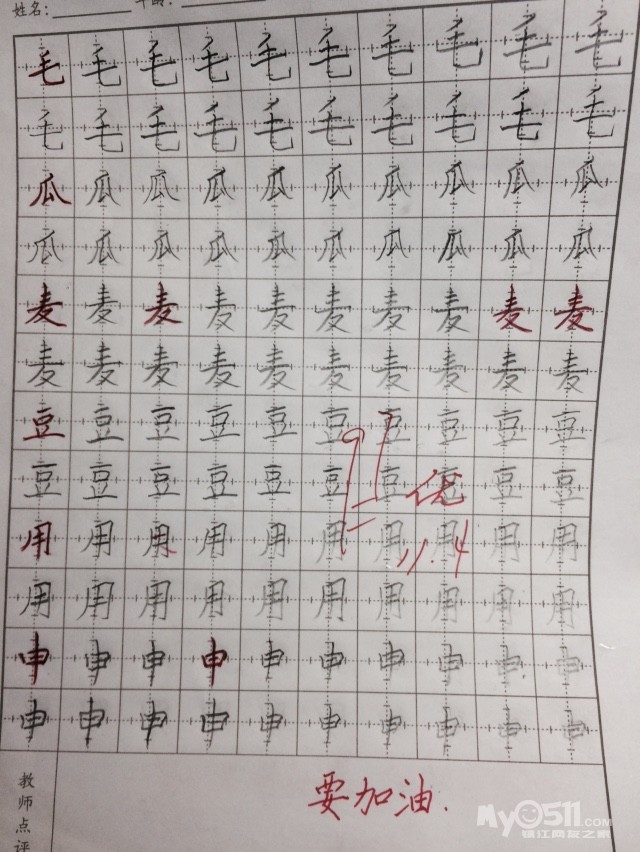 姓名： 年龄：
毛毛毛毛毛毛毛毛毛毛
毛毛毛毛毛毛毛毛毛毛
瓜瓜瓜瓜瓜瓜瓜瓜瓜瓜
瓜瓜瓜瓜瓜瓜瓜瓜瓜瓜
麦麦麦麦麦麦麦麦麦麦
麦麦麦麦麦麦麦麦麦麦
豆豆豆豆豆豆豆豆豆豆
豆豆豆豆豆豆豆豆豆豆
优
用用用用用用用用用用
11.4
用用用用用用用用用用
申申申申申申申申申申
申申申申申申申申申申
教师点评
要加油.
My0511.com
镇江网友之家